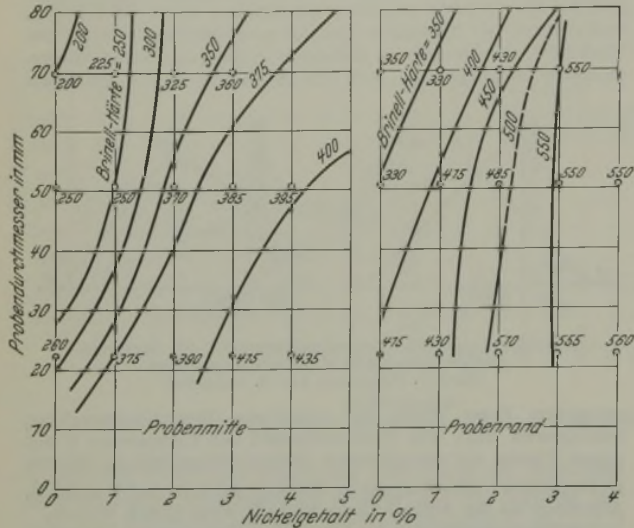 80
70
60
50
40
30
20
10
0
Probendurchmesser in mm
200
Brinell-Härte = 250
300
350
375
400
200
225
325
360
250
250
370
385
395
260
375
390
415
435
Probenmitte
0
1
2
3
4
5
Brinell-Härte = 350
400
450
500
550
350
330
430
550
330
475
485
550
550
415
430
510
555
560
Probenrand
0
1
2
3
4
Nickelgehalt in %